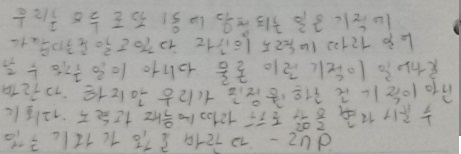 우리는 모두 로또 1등에 당첨되는 일은 기적에
가깝다는 것을 알고 있다. 자신의 노력에 따라 일어
날 수 있는 일이 아니다 물론 이런 기적이 일어나길
바란다. 하지만 우리가 진정 원하는 건 기적이 아닌
기회다. 노력과 재능에 따라 스스로 삶을 변화 시킬 수
있는 기회가 있길 바란다. - 2np